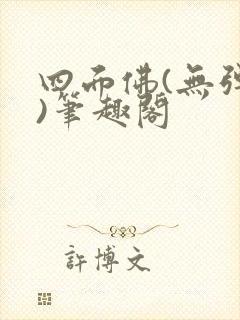 四而佛(無彈
)筆趣閣
許博文